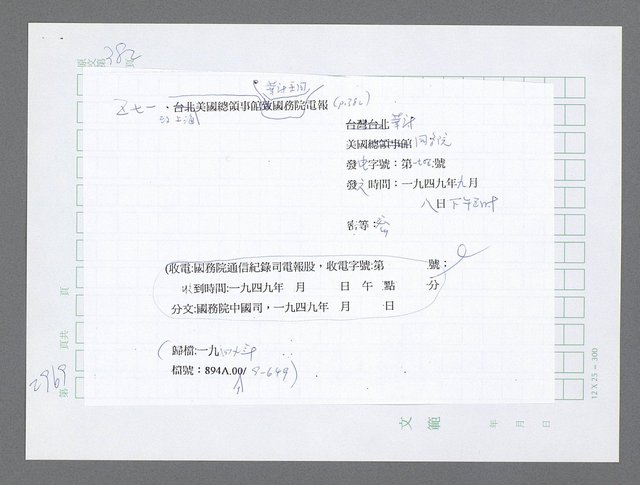 382
華府美國
五七一、台北美國總領事館致國務院電報 (p.382)
台灣台北 華府
美國總領事館 國務院
發電字號：第 號
發文時間：一九四九年九月
八日下午五時
密等：密
(收電:國務院通信紀錄司電報股，收電字號:第 號；
收到時間:一九四九年 月 日 午 點 分
分文:國務院中國司，一九四九年 月 日
(歸檔:一九四九年
檔號：894A.00/9-649)
2969
第 頁共 頁
文 範
年 月 日
12 X 25 = 300